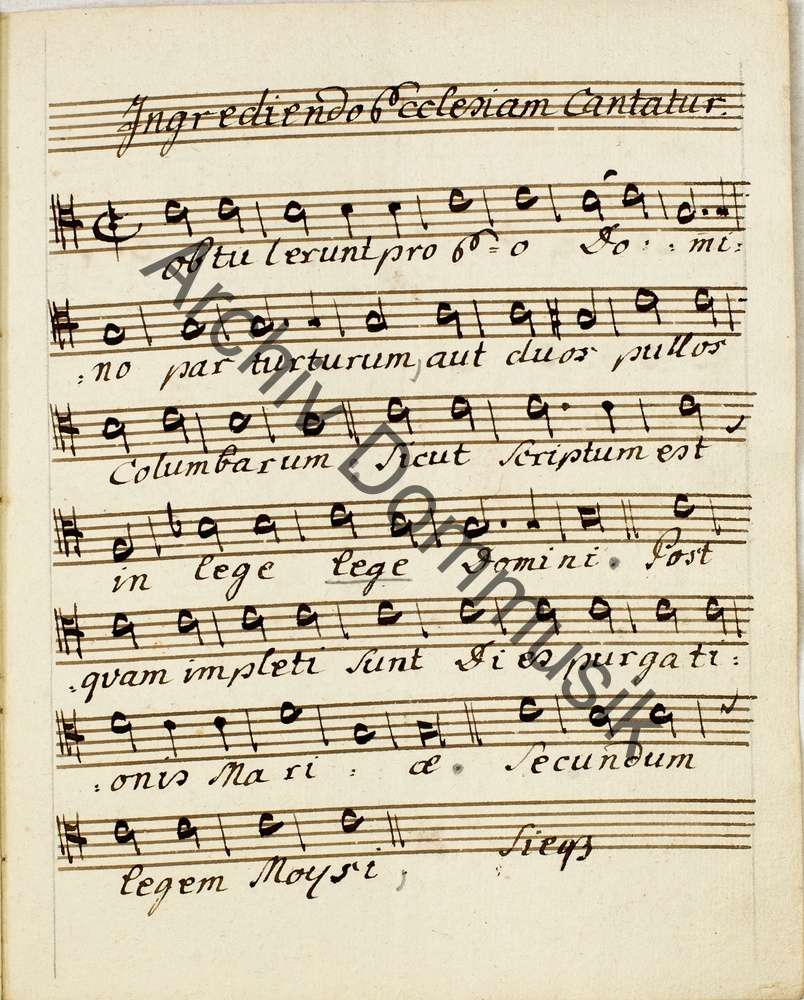 Ingrediendo Ecclesiam Cantatur.
obtulerunt pro Eo Do : : mi:
:no par turturum, aut duos pullos
Columbarum . Sicut Scriptum est
in lege lege Domini. Post
:quam impleti Sunt Dies purgati:
:onis Mari : æ. Secundum
legem Moysi,
Archiv Dommusik